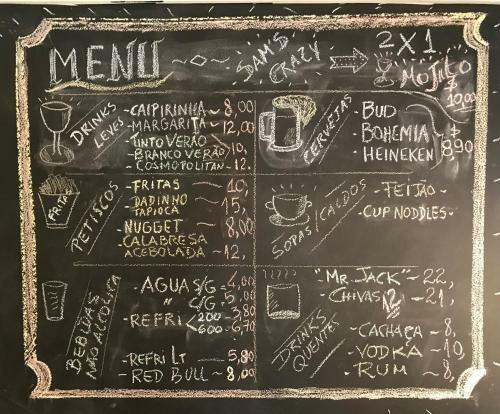 MENU ~◇~ SAMS CRAZY → 2X1 MOJITO $ 10,00
DRINKS LEVES
- CAIPIRINHA ~ 8,00
- MARGARITA ~ 12,00
- TINTO VERÃO
- BRANCO VERÃO 10,
- COSMOPOLITAN - 12.
CERVEJAS
- BUD
- BOHEMIA ~ $
- HEINEKEN 8,90
FRITA
PETISCOS
- FRITAS ~ 10,
- DADINHO TAPIOCA ~ 15,
- NUGGET ~ 8,00
- CALABRESA
ACEBOLADA ~ 12,
SOPAS/CALDOS
- FEIJÃO -
- CUP NODDLES -
BEBIDAS NÃO ALCOLICA
- AGUA S/G - 4,00
" C/G - 5,00
- REFRI < 200 3,80
600 - 6,70
- REFRI LT ~ 5,80
- RED BULL ~ 8,00
DRINKS QUENTES
- "MR. JACK" ~ 22,
- CHIVAS 12 ~ 21,
- CACHAÇA ~ 8,
- VODKA ~ 10,
- RUM ~ 8,